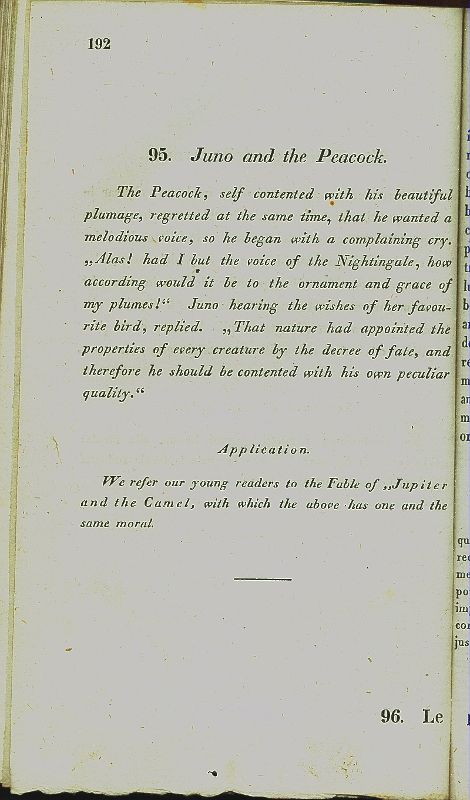 192
95. Juno and the Peacock.
The Peacock, self contented with his beautiful
plumage, regretted at the same time, that he wanted a
melodious voice, so he began with a complaining cry.
„Alas! had I but the voice of the Nightingale, how
according would it be to the ornament and grace of
my plumes!“ Juno hearing the wishes of her favou-
rite bird, replied. „That nature had appointed the
properties of every creature by the decree of fate, and
therefore he should be contented with his own peculiar
quality.“
Application.
We refer our young readers to the Fable of „Jupiter
and the Camel, with which the above has one and the
same moral.
96. Le